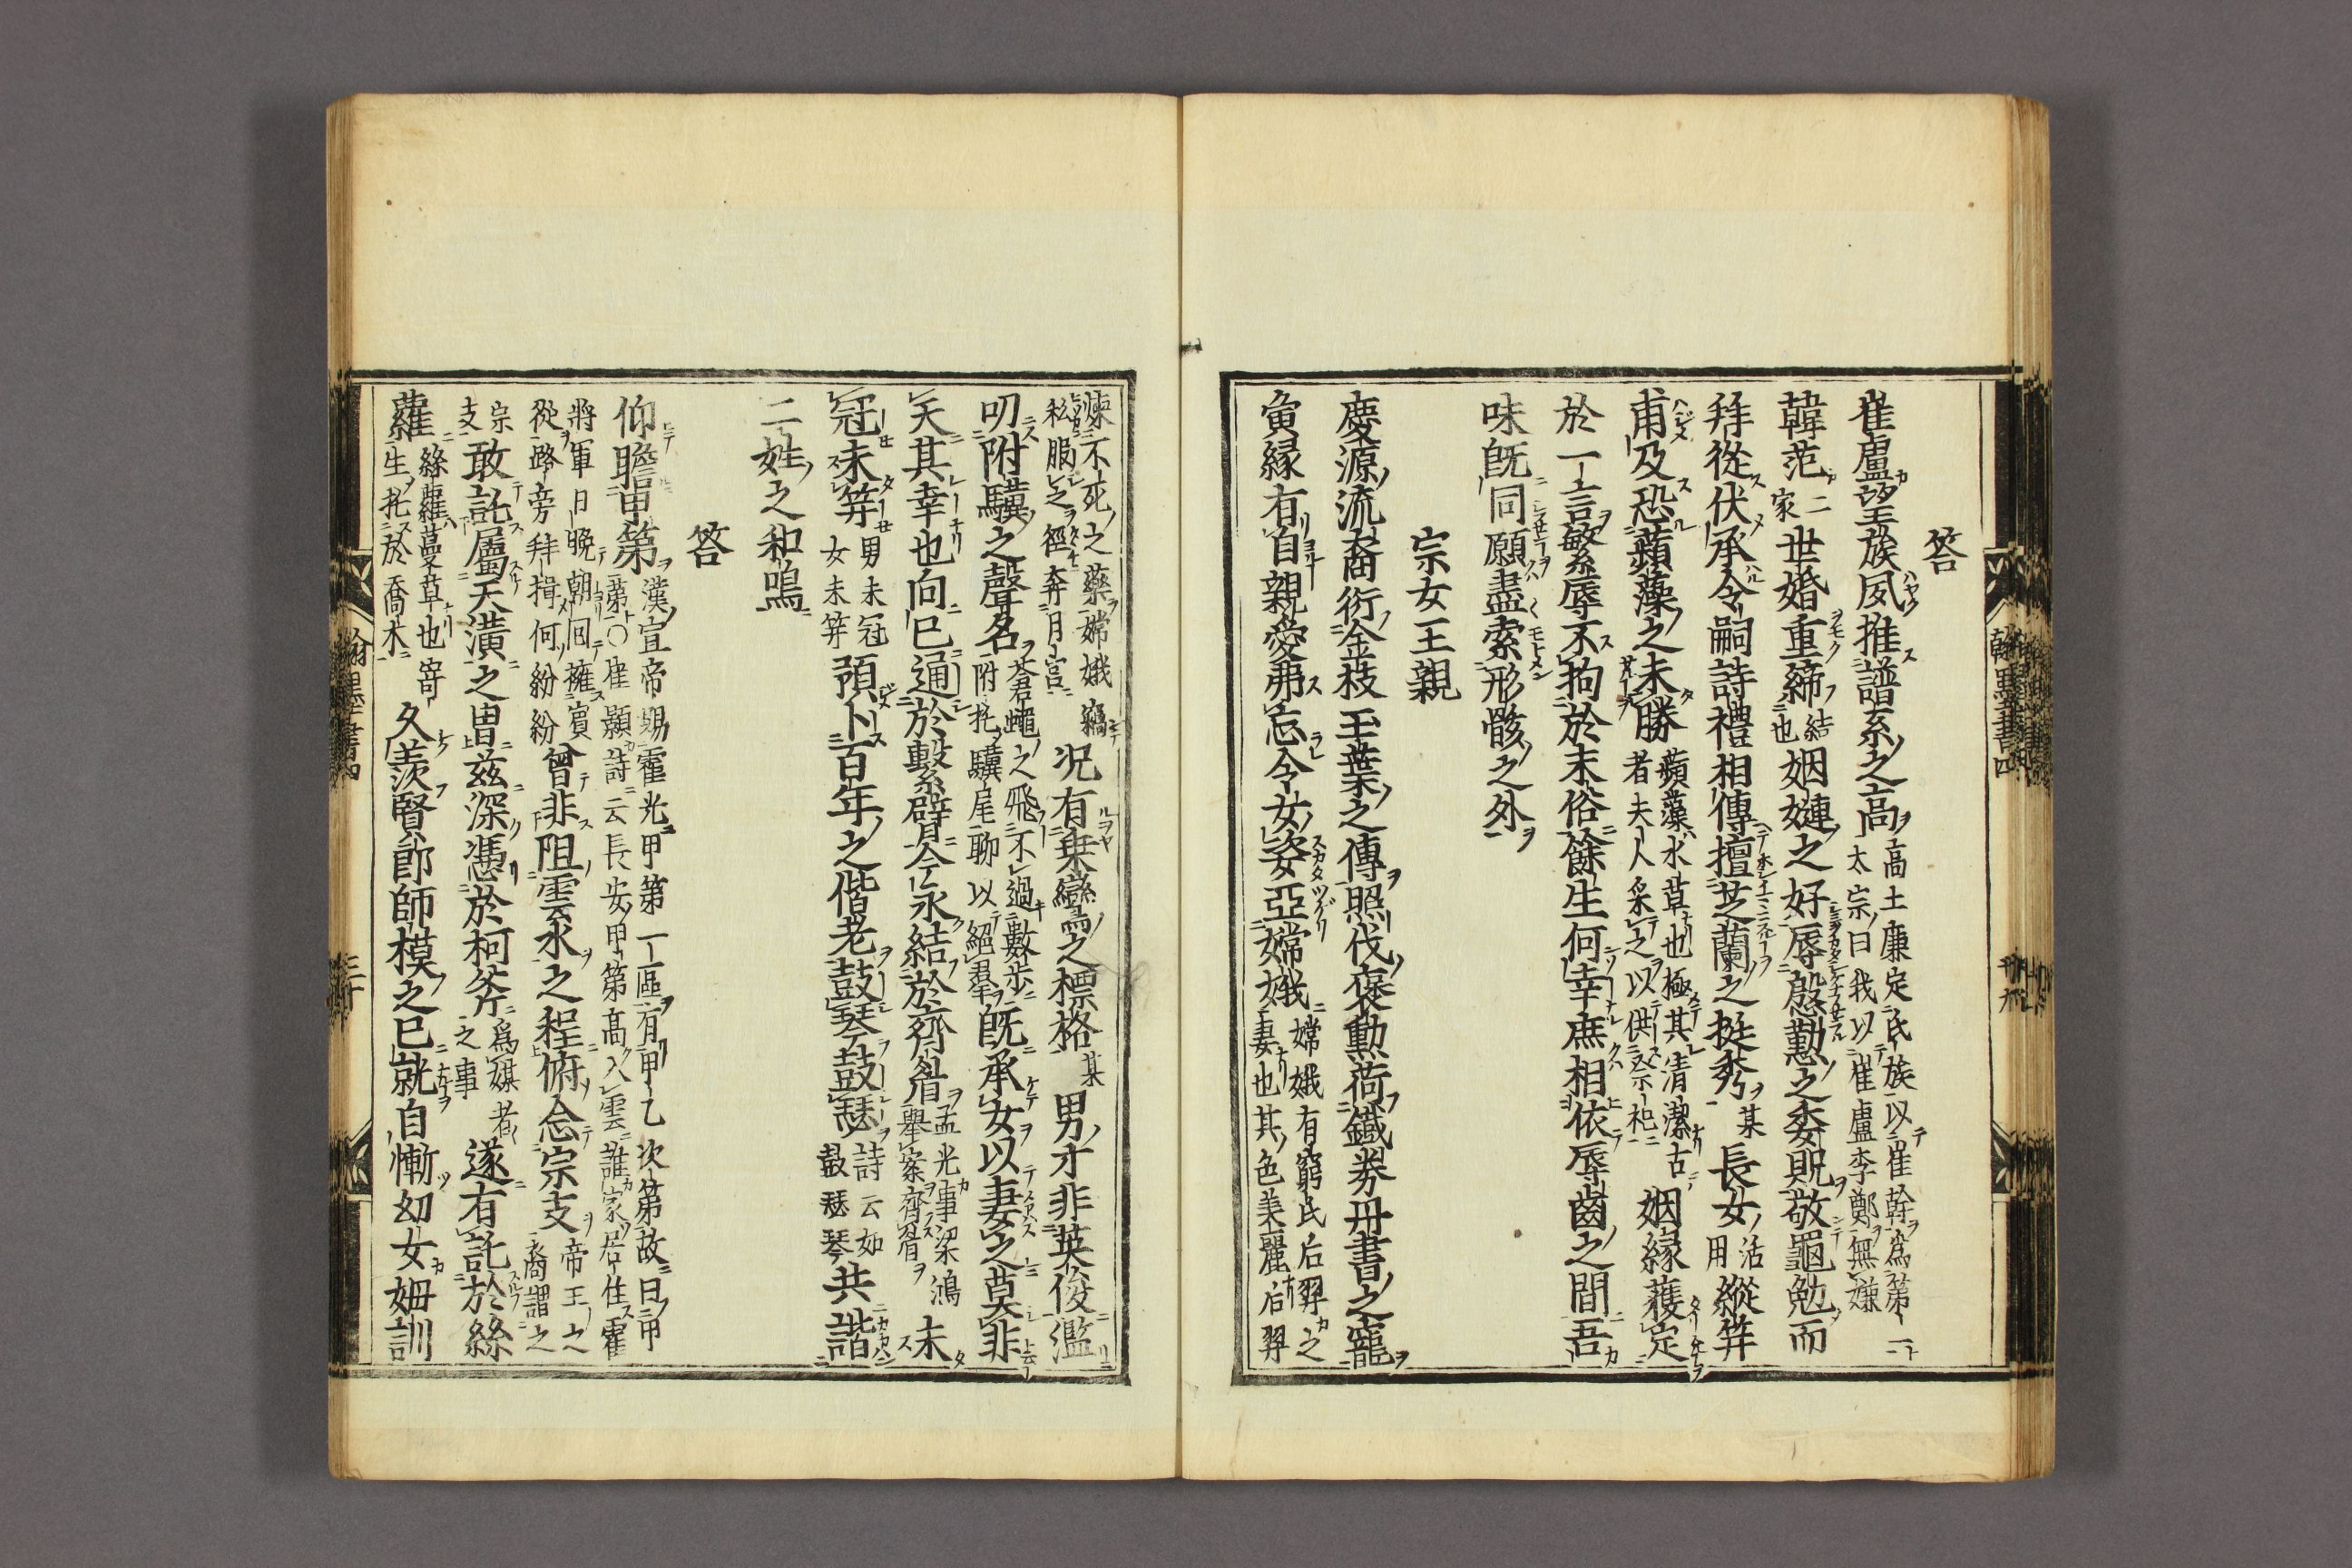 答
崔盧望族夙推譜系之高高士廉定氏族以崔幹爲第一
太宗曰我以崔盧李鄭無嫌
韓范二家世婚重締結也姻嫂之好辱慇懃之委貺敬黽勉而
拜從伏承令嗣詩禮相傳擅芝蘭之挺秀某長女活用縱笄
甫及恐蘋藻之未勝蘋藻水草也極其清潔古
者夫人采之以供祭祀姻縁蒦定
於一言繁辱不拘於末俗餘生何幸庶相依辱齒之間吾
味既同願盡索形骸之外
宗女王親
慶源流裔衍金枝玉葉之傳照伐褒勲荷鐵券丹書之寵
寅縁有自親愛弗忘令女姿亞嫦娥嫦娥有窮氏后羿之
妻也其色美麗后羿
煉不死之藥嫦娥竊
私服之徑奔月宮況有乗鸞之標格某男才非英俊濫
叨附驥之聲名蒼蠅之飛不過數歩
附托驥尾聊以絕羣既承女以妻之莫非
天其幸也向已通於繫臂今乞永結於齊眉孟光事梁鴻
舉案齊眉未
冠未笄男未冠
女未笄預卜百年之偕老鼓琴鼓瑟詩云如
鼓瑟琴共諧
二姓之和鳴
答
仰瞻甲第漢宣帝賜霍光甲第一區有甲乙次第故曰甲
第○崔顥詩云長安甲第高入雲誰家居住霍
將軍日晩朝回擁賓
從路旁拜揖何紛紛曾非阻雲水之程俯念宗支帝王之
裔謂之
宗
支敢託屬天潢之冑兹深憑於柯斧爲媒者
之事遂有託於絲
蘿絲蘿蔓草也寄
生托於喬木久羨賢郎師模之已就自慚幼女姆訓
翰墨書四
廿九
翰墨書四
三十